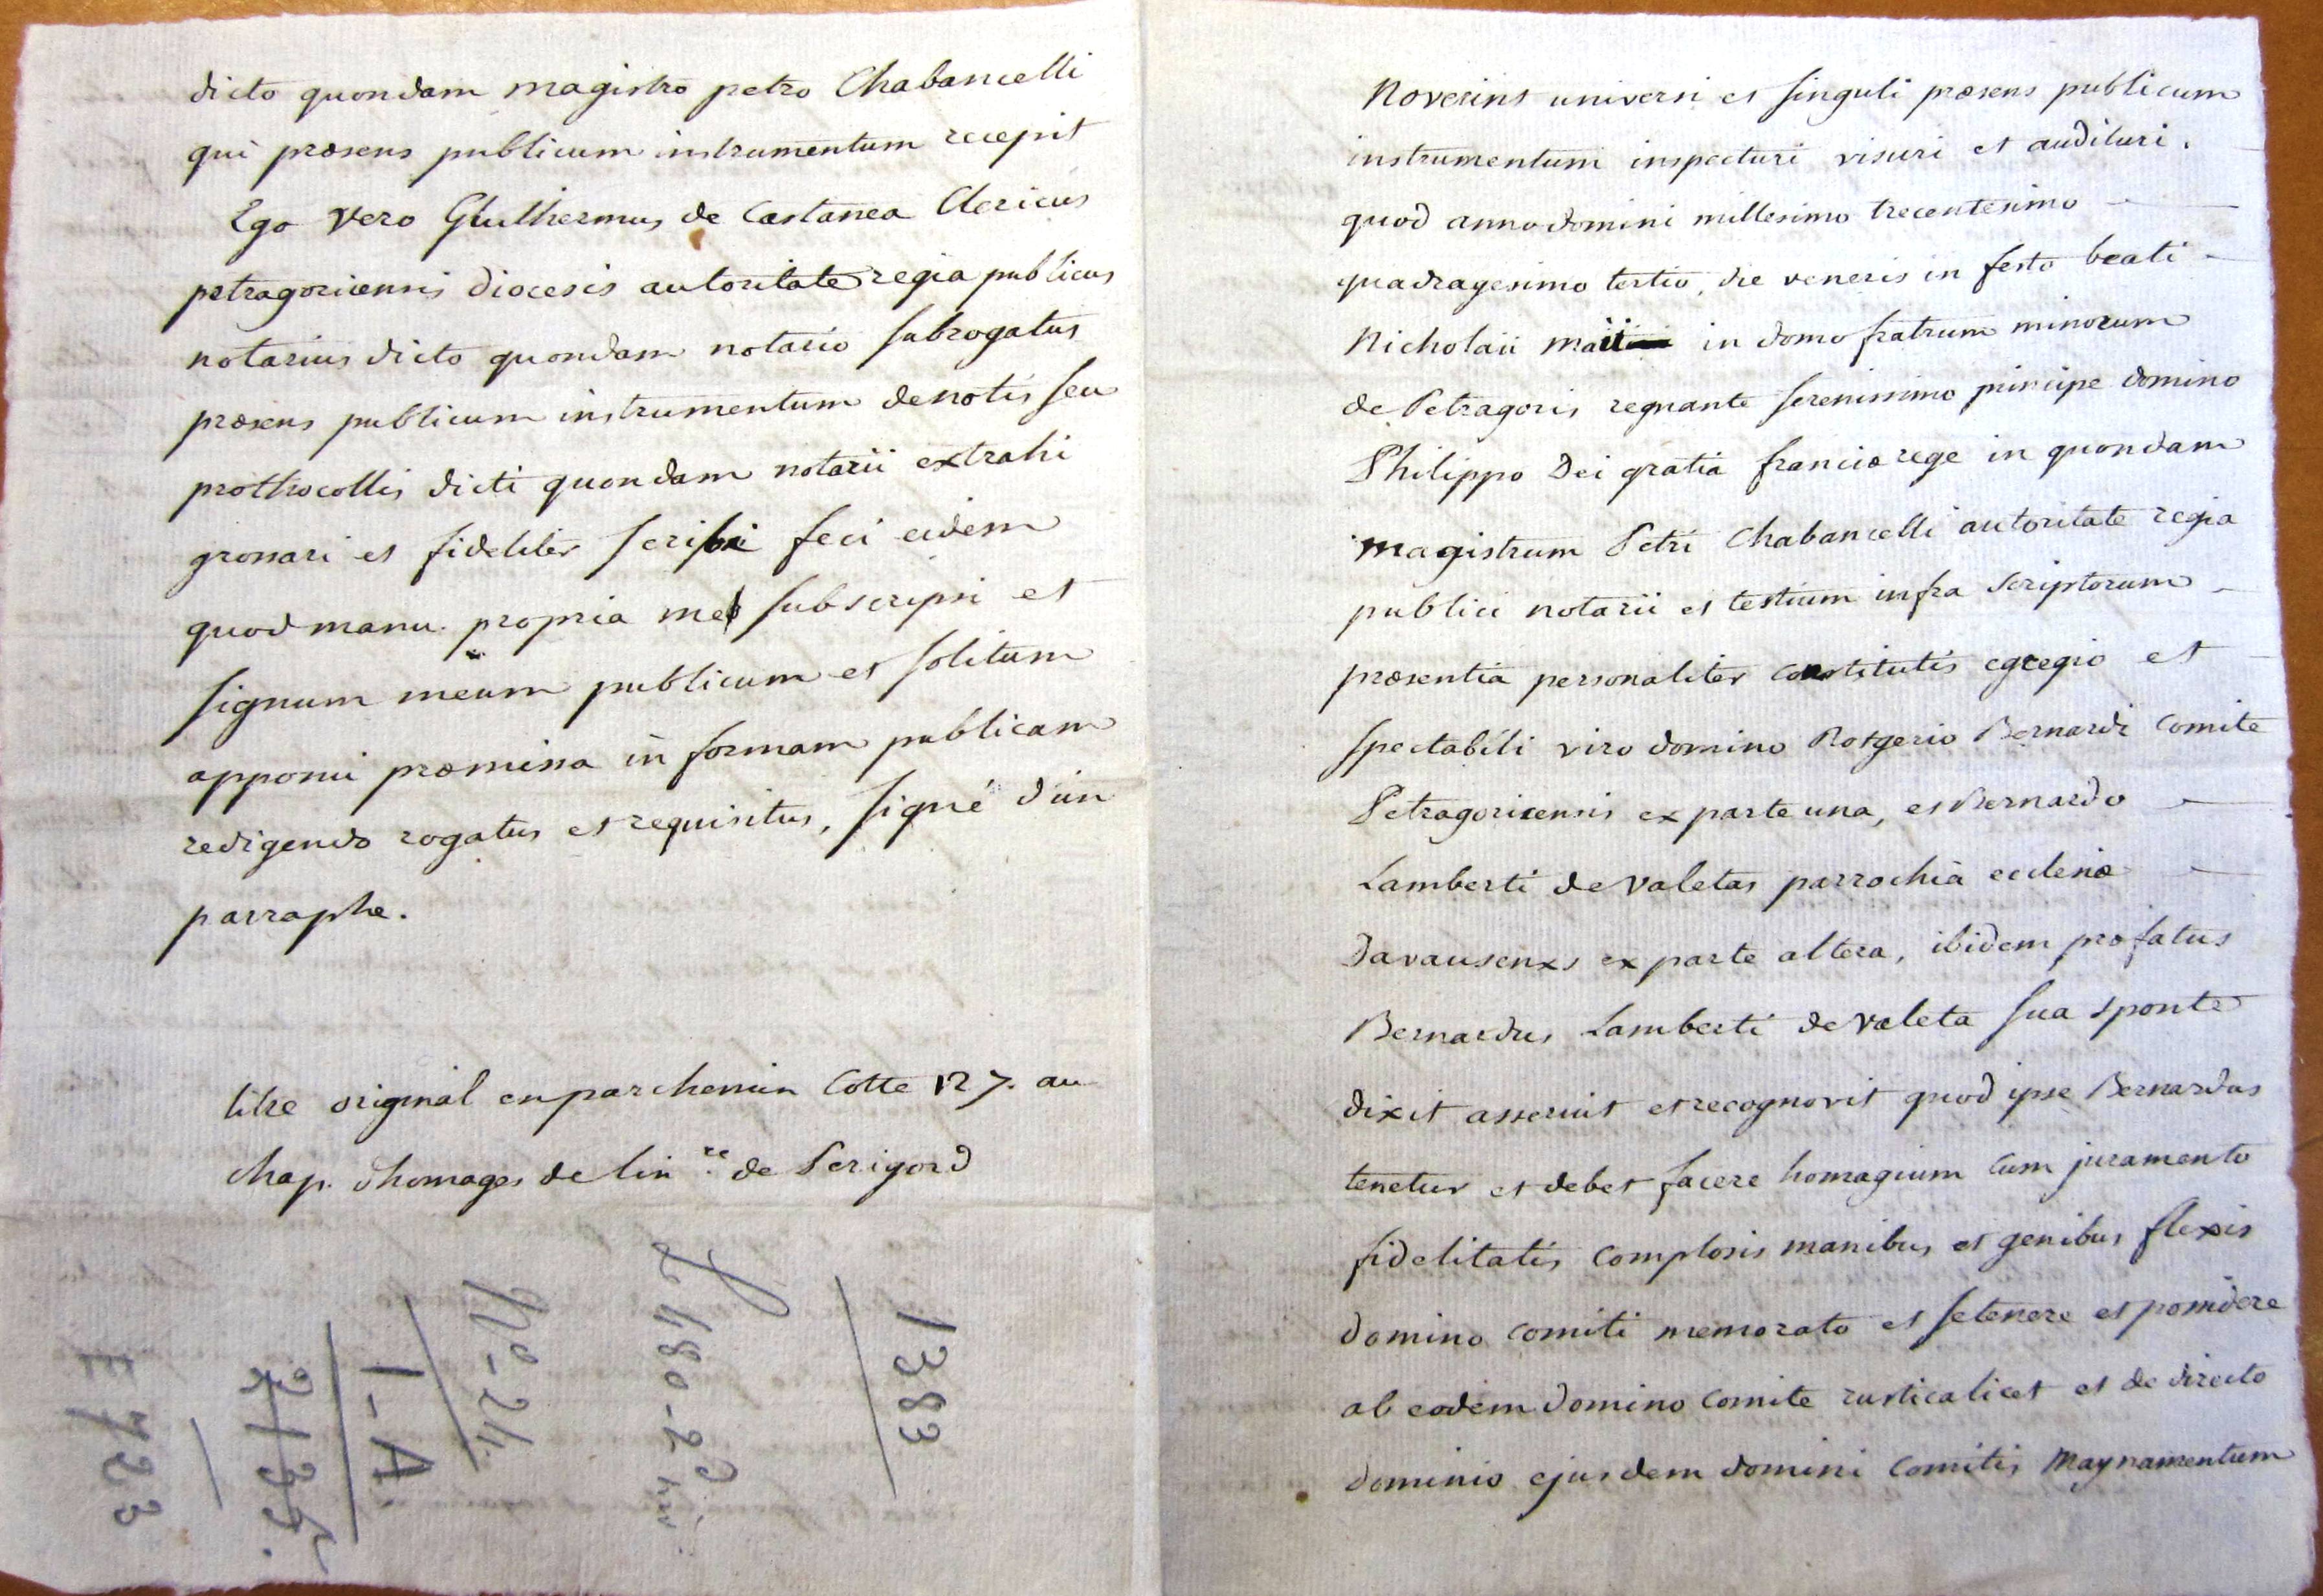 dicto quondam magistro petro Chabancelli
qui præsens publicum instrumentum recepit
Ego vero Guilhermus de Castanea Clericus
petragoricensis diocesis autoritate regia publicus
notarius dicto quondam notario subrogatus
præsens publicum instrumentum de notis seu
prothocollis dicti quondam notarii extrahi
grossari et fideliter scribi feci eidem
quod manu propria mea subscripsi et
signum meum publicum et solitum
apposui præmissa in formam publicam
redigendo rogatus et requisitus, signé d'un
parraphe.
titre original en parchemin Cotte 127. au
chap. d'homages de l'inre de Perigord
1383
480-2
No-24.
1-A
2135.
E 723
Noverint universi et singuli præsens publicum
instrumentum inspecturi visuri et audituri.
quod anno domini millesimo trecentesimo
quadragesimo tertio, die veneris in festo beati
Nicholaii maii in domo fratrum minorum
de Petragoris regnante serenissimo principe domino
Philippo Dei gratia franciæ rege in quondam
magistrum Petri Chabancelli autoritate regia
publici notarii et testium infra scriptorum
præsentia personaliter constitutis egregio et
spectabili viro domino Rotgerio Bernardi Comite
Petragoricensis ex parte una, et Bernardo
Lamberti de Valetas parrochia ecclesiæ
Davausenxs ex parte altera, ibidem præfatus
Bernardus Lamberti de Valeta sua sponte
dixit asseruit et recognovit quod ipse Bernardus
tenetur et debet facere homagium cum juramento
fidelitatis complosis manibus et genibus flexis
domino comiti memorato et se tenere et possidere
ab eodem domino Comite rusticalicet et de directo
dominio ejusdem domini Comitis Maynamentum